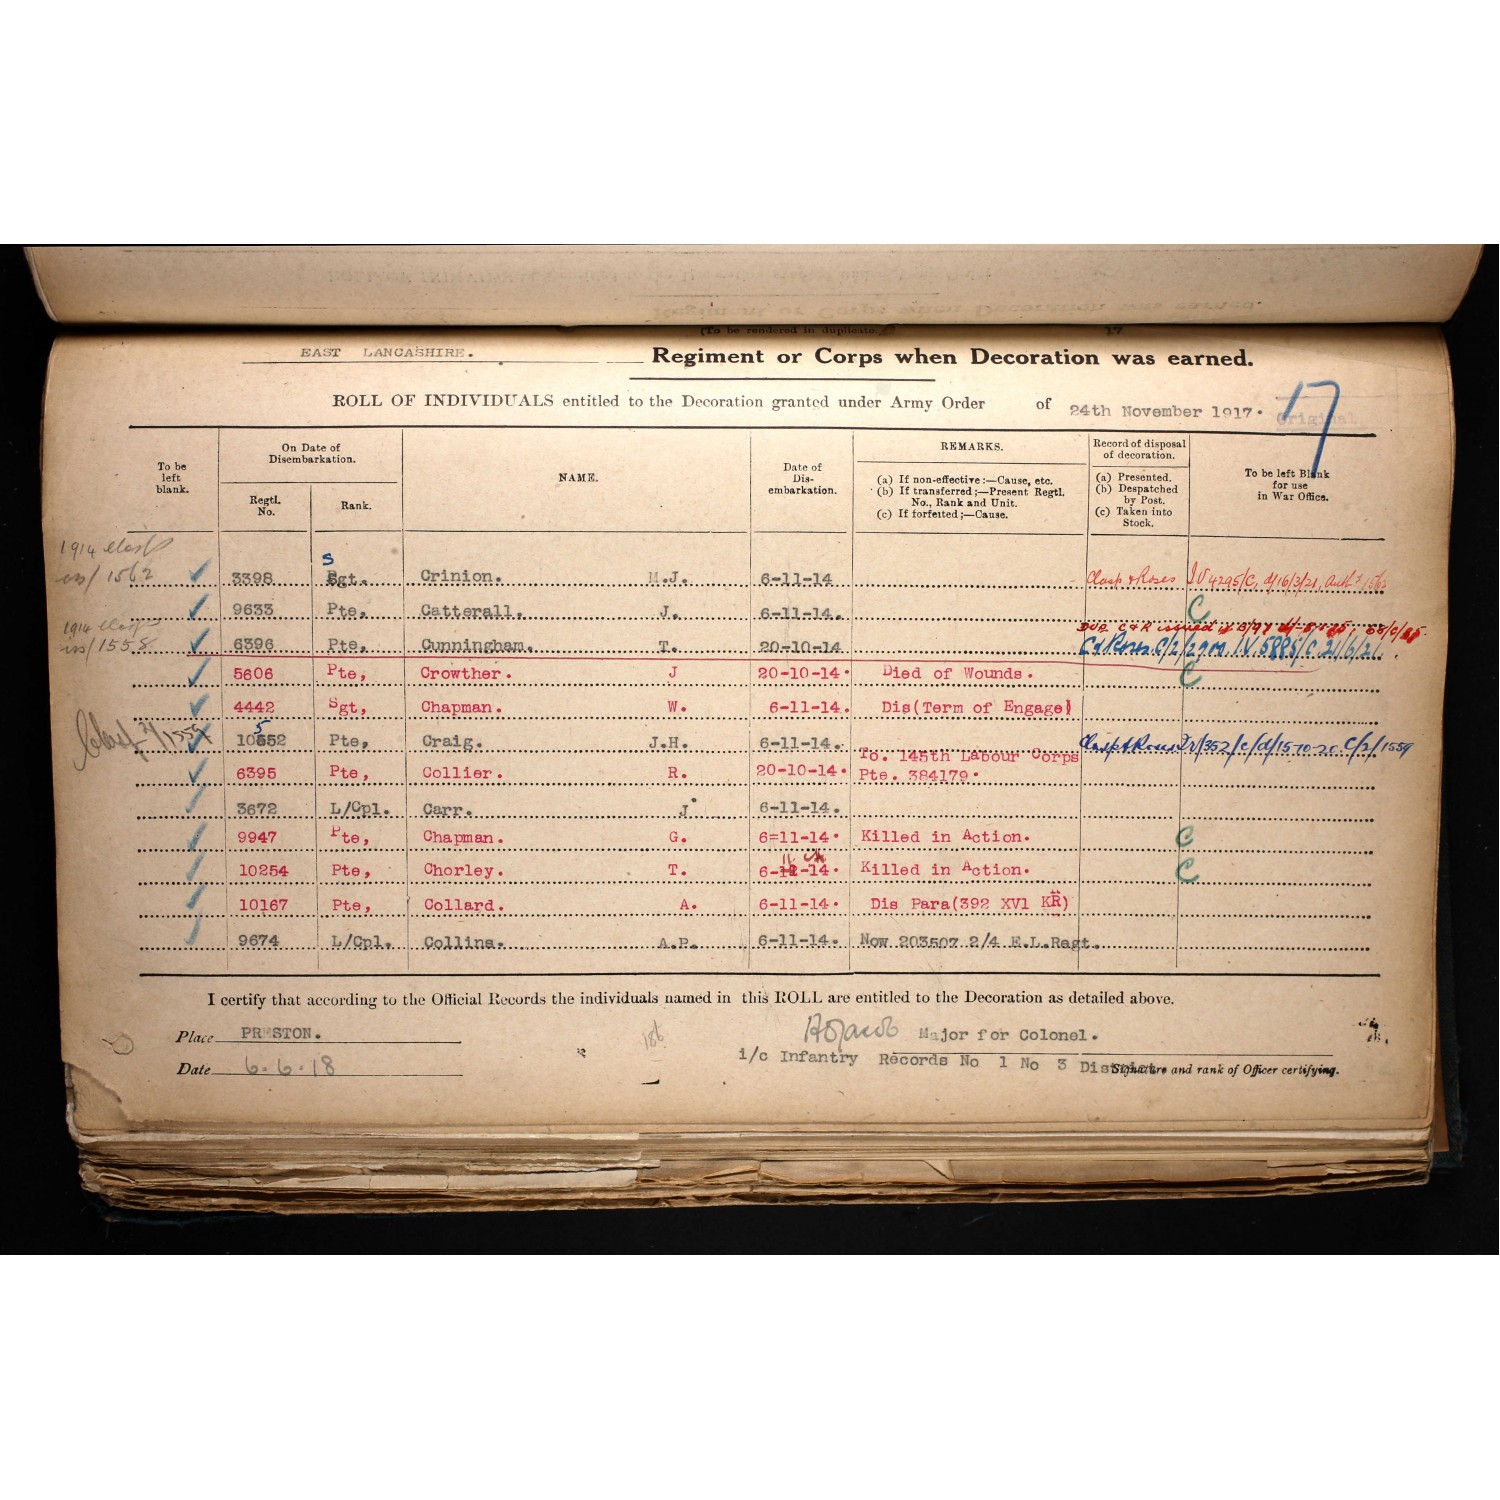 (To be rendered in duplicate.) 17
EAST LANCASHIRE. Regiment or Corps when Decoration was earned.
ROLL OF INDIVIDUALS entitled to the Decoration granted under Army Order of 24th November 1917. Original
17
To be left blank. On Date of Disembarkation. Regtl. No. Rank. NAME. Date of Dis-embarkation. REMARKS. (a) If non-effective:—Cause, etc. (b) If transferred;—Present Regtl. No., Rank and Unit. (c) If forfeited;—Cause. Record of disposal of decoration. (a) Presented. (b) Despatched by Post. (c) Taken into Stock. To be left Blank for use in War Office.
1914 clasp
iss/1562 3398 Sgt. Crinion. M.J. 6-11-14 Clasp & Roses IV 4295/C, d/16/3/21, 1562
9633 Pte, Catterall. J. 6-11-14. C
1914 clasp
iss/1558 6396 Pte, Cunningham. T. 20-10-14 C & Roses C/2/2902 IV 5885/C 21/6/21.
DUP C & R issued
5606 Pte, Crowther. J 20-10-14. Died of Wounds. C
4442 Sgt, Chapman. W. 6-11-14. Dis(Term of Engage)
Clasp 1559 10552 Pte, Craig. J.H. 6-11-14. Clasp & Roses Iv/352/C/d/15-10-20 C/2/1559
6395 Pte, Collier. R. 20-10-14. To. 145th Labour Corps
Pte. 384179.
3672 L/Cpl. Carr. J. 6-11-14.
9947 Pte, Chapman. G. 6=11-14. Killed in Action. C
10254 Pte, Chorley. T. 6-11-14. Killed in Action. C
10167 Pte, Collard. A. 6-11-14. Dis Para(392 XVI KR)
9674 L/Cpl. Collins. A.P. 6-11-14. Now 203507 2/4 E.L.Regt.
I certify that according to the Official Records the individuals named in this ROLL are entitled to the Decoration as detailed above.
Place PRESTON. Major for Colonel.
i/c Infantry Records No 1 No 3 District.
Date 6.6.18 Signature and rank of Officer certifying.
186